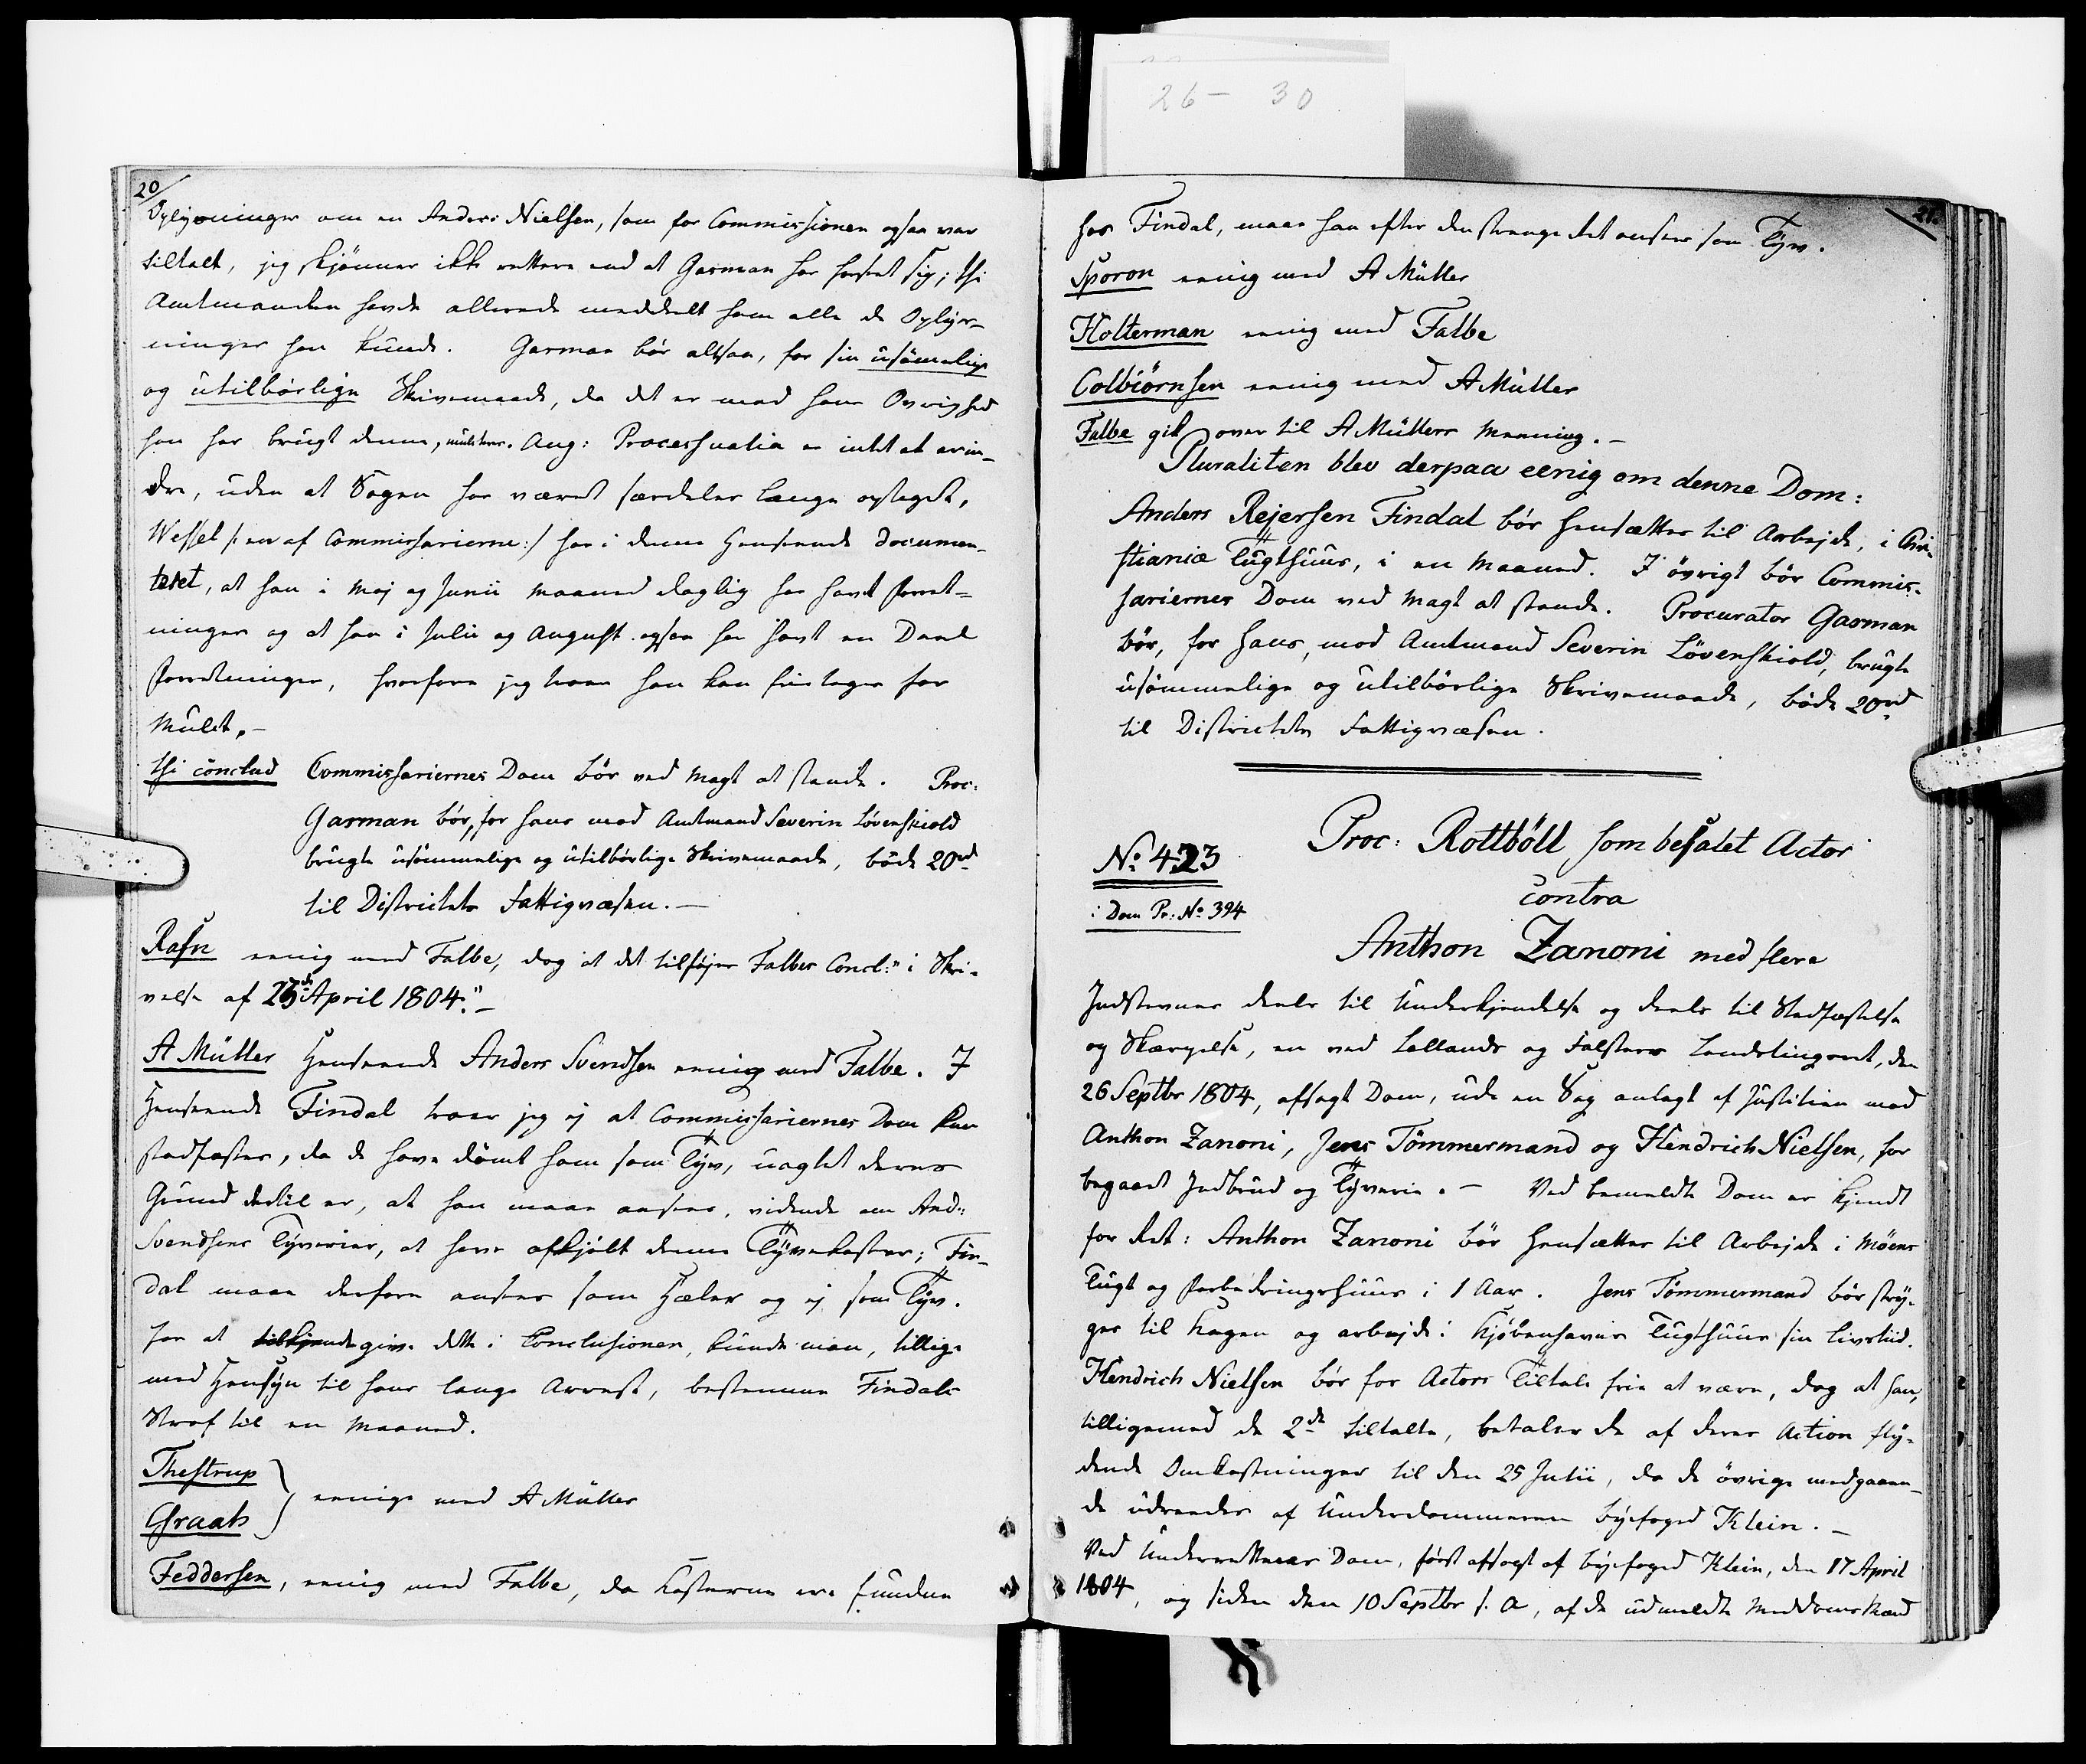 26 - 30
20
Oplysninger om en Anders Nielsen, som for Commissionen ogsaa var
tiltalt, jeg skjönner ikke rettere end at Garman har forseet sig; thi
Amtmanden havde allerede meddeelt ham alle de Oplys-
ninger han kunde. Garman bör altsaa, for sin usömmelige
og utilbörlige Skrivemaade, da det er mod hans Øvrighed
han har brugt denne, mulcteres. Ang: Processualia er intet at erin-
dre, uden at Sagen har været særdeles længe opteget,
Wessel /: en af Commissarierne :/ har i denne Henseende documen-
teret, at han i Maj og Junii Maaned daglig har havt Forret-
ninger og at han i Julii og August ogsaa har havt en Deel
Forretninger, hvorfore jeg troer han kan fritages for
Mulct. -
thi conclud Commissariernes Dom bör ved Magt at stande. Proc:
Garman bör, for hans mod Amtmand Severin Lövenskiold
brugte usömmelige og utilbörlige Skrivemaade, böde 20rd
til Districtets Fattigvæsen. -
Rafn eenig med Falbe, dog at det tilföjes Falbes Concl: "i Skri-
velse af 23de April 1804." -
A Müller Henseende Anders Svendsen eenig med Falbe. I
Henseende Findal troer jeg ej at Commissariernes Dom kan
stadfæstes, da de have dömt ham som Tÿv, uagtet deres
Grund dertil er, at han maae ansees, vidende om And:
Svendsens Tÿverier, at have afkjöbt denne Tÿvekoster; Fin-
dal maae derfore ansees som Hæler og ej som Tÿv.
For at tilkjende give dette i Conclusionen, kunde man, tillige
med Hensÿn til hans lange Arrest, bestemme Findals
Straf til en Maaned.
Thestrup
Graah } eenige med A Müller
Feddersen, eenig med Falbe, da Kosterne ere fundne
21.
hos Findal, maae han efter den strænge Ret ansees som Tÿv.
Sporon eenig med A Müller
Holterman eenig med Falbe
Colbiörnsen eenig med A Müller
Falbe gik over til A Müllers Meening. -
Pluraliten blev derpaa eenig om denne Dom:
Anders Rejersen Findal bör hensættes til Arbejde, i Chri-
stianiæ Tugthuus, i en Maaned. I övrigt bör Commis-
sariernes Dom ved Magt at stande. Procurator Garman
bör, for hans, mod Amtmand Severin Lövenskiold, brugte
usömmelige og utilbörlige Skrivemaade, böde 20rd
til Districtets Fattigvæsen.
No 423
i Dom Pr: No 394
Proc: Rottböll som befalet Actor
contra
Anthon Zanoni med flere
Indstevner deels til Underkjendelse og deels til Stadfæstelse
og Skærpelse, en ved Lollands og Falsters Landstingsret, den
26 Septbr 1804, afsagt Dom, udi en Sag anlagt af Justitien mod
Anthon Zanoni, Jens Tömmermand og Hendrich Nielsen, for
begaaet Indbrud og Tÿverie. - Ved bemeldte Dom er kjendt
for Ret: Anthon Zanoni bör hensættes til Arbejde i Möens
Tugt og Forbedringshuus i 1 Aar. Jens Tömmermand bör strÿ-
ges til Kagen og arbejde i Kjöbenhavns Tugthuus sin Livstiid.
Hendrich Nielsen bör for Actors Tiltale frie at være, dog at han,
tilligemed de 2de tiltalte, betaler de af deres Action flÿ-
dende Omkostninger til den 25 Julii, da de övrige medgaaen-
de udreedes af Underdommeren Bÿefoged Klein. -
Ved Underrettens Dom, först afsagt af Bÿefoged Klein, den 17 April
1804, og siden den 10 Septbr s. A, af de udmeldte Meddomsmænd